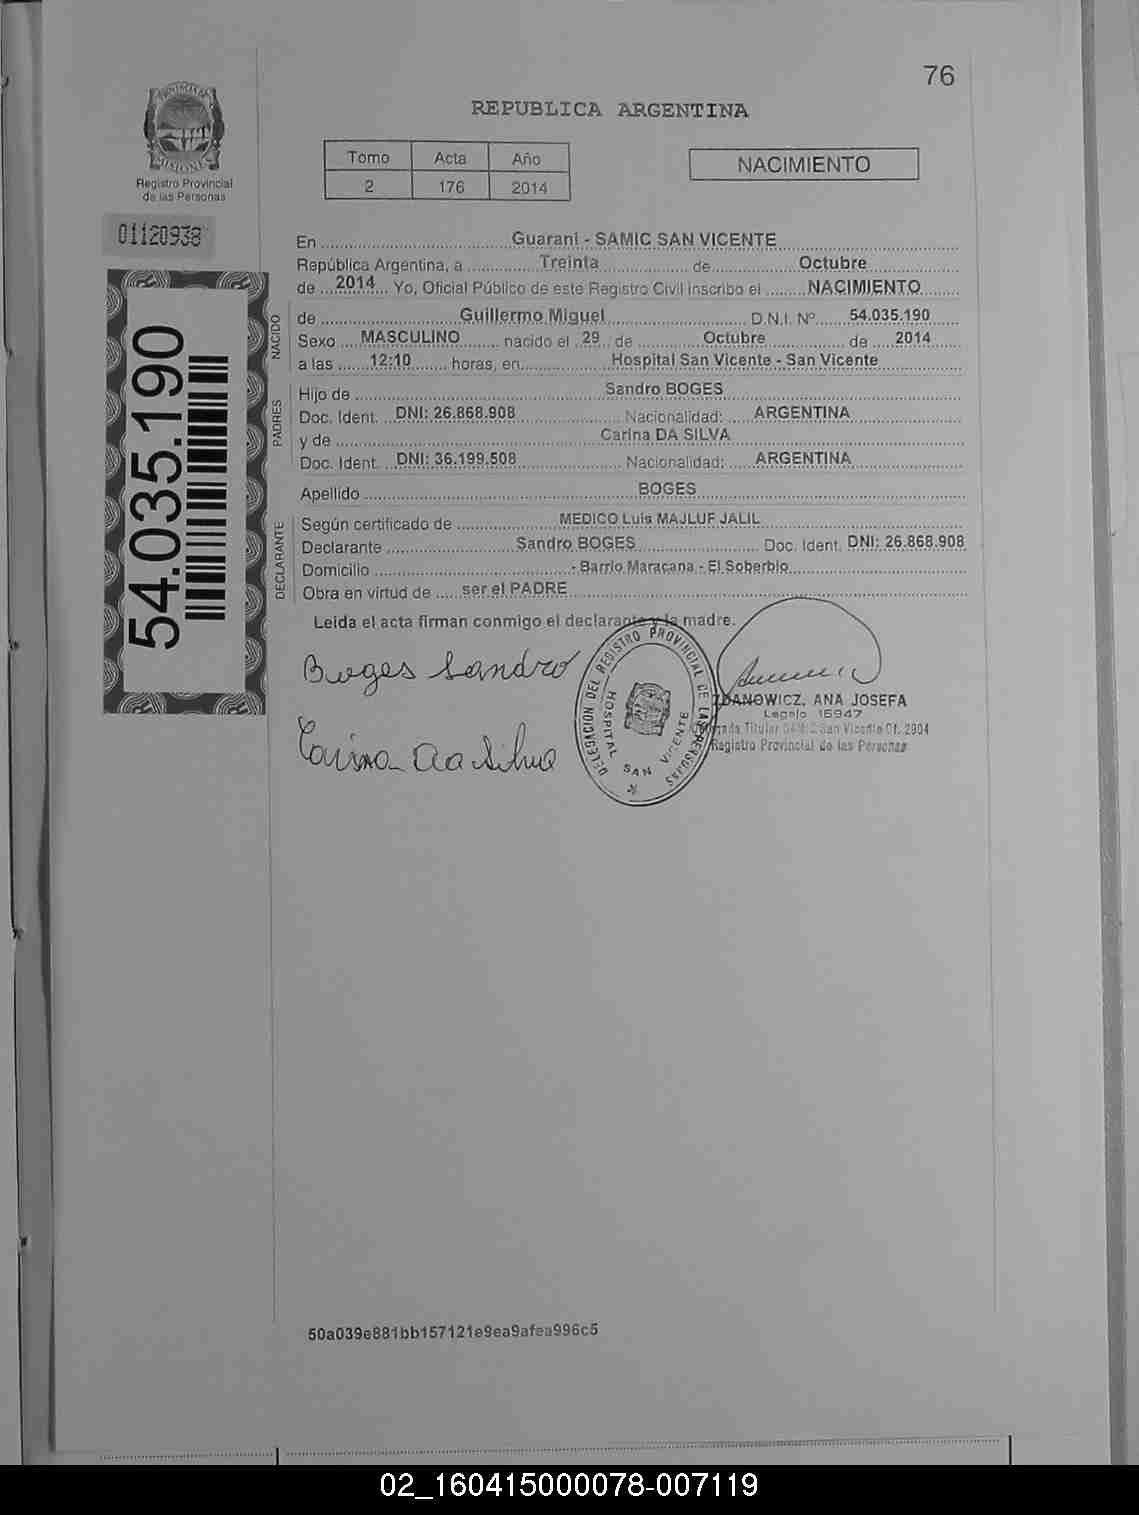 76
REPUBLICA ARGENTINA
PROVINCIA DE
MISIONES
Registro Provincial
de las Personas
Tomo Acta Año
2 176 2014
NACIMIENTO
01120938
54.035.190
En Guaraní - SAMIC SAN VICENTE
República Argentina, a Treinta de Octubre
de 2014 Yo, Oficial Público de este Registro Civil inscribo el NACIMIENTO
NACIDO
de Guillermo Miguel D.N.I. Nº 54.035.190
Sexo MASCULINO nacido el 29 de Octubre de 2014
a las 12:10 horas, en Hospital San Vicente - San Vicente
PADRES
Hijo de Sandro BOGES
Doc. Ident. DNI: 26.868.908 Nacionalidad: ARGENTINA
y de Carina DA SILVA
Doc. Ident. DNI: 36.199.508 Nacionalidad: ARGENTINA
Apellido BOGES
DECLARANTE
Según certificado de MEDICO Luis MAJLUF JALIL
Declarante Sandro BOGES Doc. Ident. DNI: 26.868.908
Domicilio - Barrio Maracana - El Soberbio
Obra en virtud de ser el PADRE
Leida el acta firman conmigo el declarante y la madre.
Boges Sandro
Carina Da Silva
DELEGACION DEL REGISTRO PROVINCIAL DE LAS PERSONAS
HOSPITAL SAN VICENTE
ZDANOWICZ, ANA JOSEFA
Legajo 15947
Titular SAMIC San Vicente Of. 2904
Registro Provincial de las Personas
50a039e881bb157121e9ea9afea996c5
02_160415000078-007119